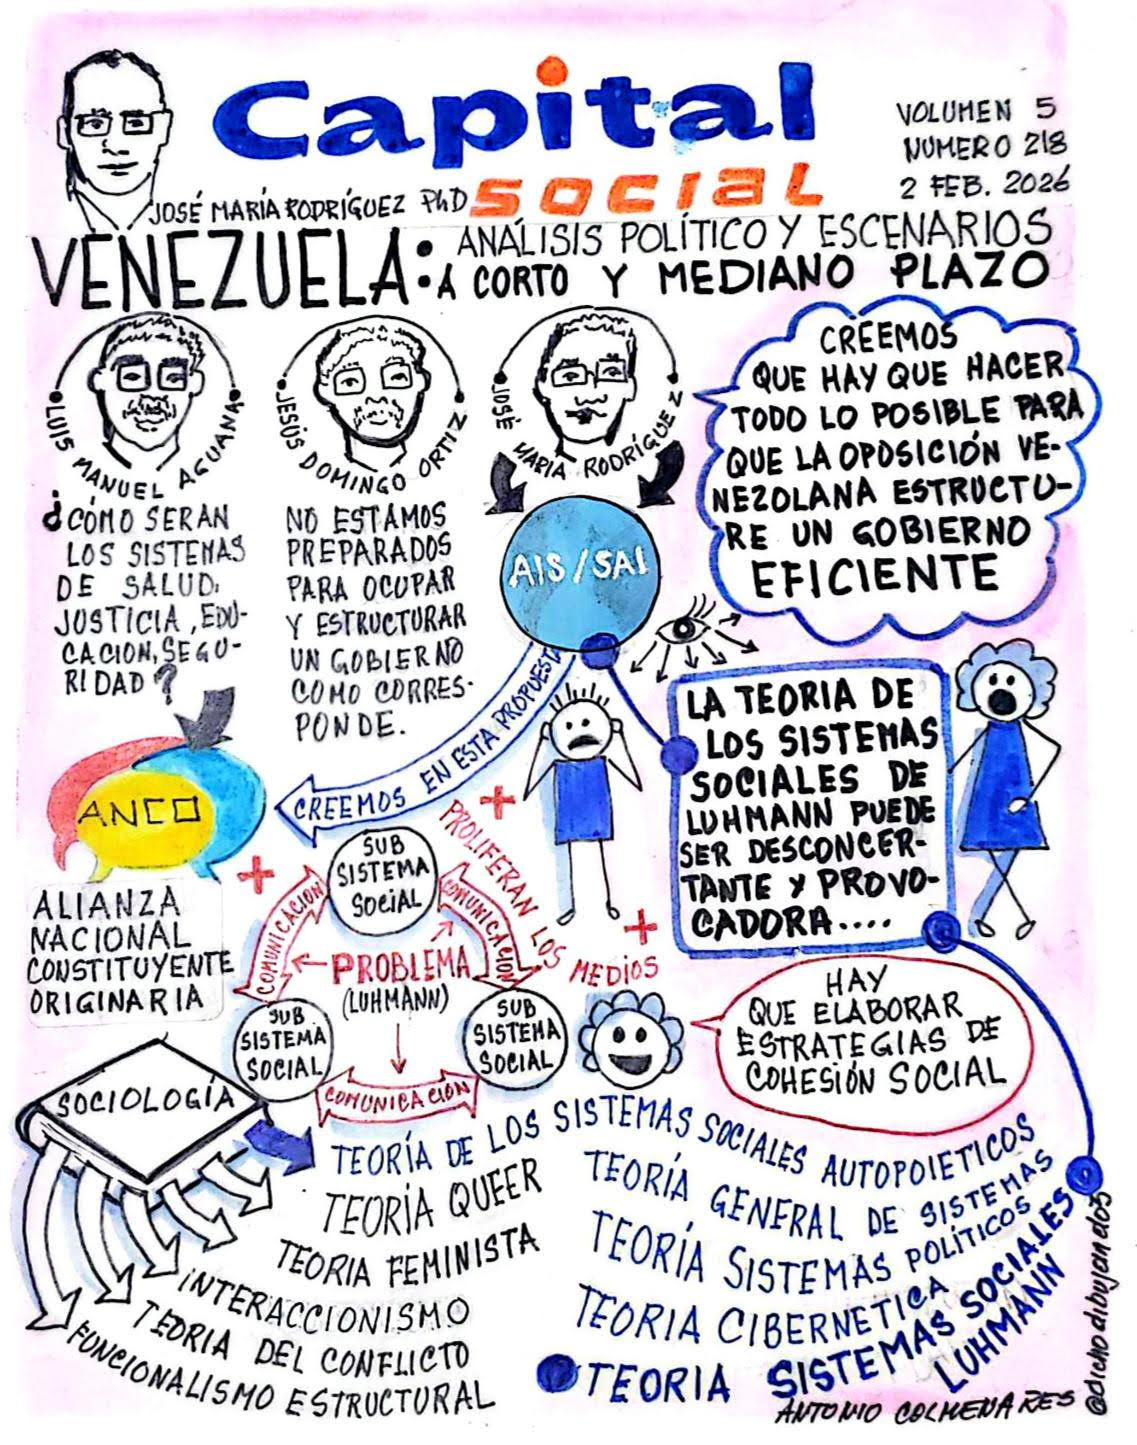 Capital
social
VOLUMEN 5
NUMERO 218
2 FEB. 2026
JOSÉ MARÍA RODRÍGUEZ PhD
VENEZUELA: ANÁLISIS POLÍTICO Y ESCENARIOS
A CORTO Y MEDIANO PLAZO
LUIS MANUEL AGUANA
JESÚS DOMINGO ORTIZ
JOSÉ MARIA RODRÍGUEZ
CREEMOS
QUE HAY QUE HACER
TODO LO POSIBLE PARA
QUE LA OPOSICIÓN VE-
NEZOLANA ESTRUCTU-
RE UN GOBIERNO
EFICIENTE
¿CÓMO SERAN
LOS SISTEMAS
DE SALUD,
JUSTICIA, EDU-
CACION, SEGU-
RIDAD?
NO ESTAMOS
PREPARADOS
PARA OCUPAR
Y ESTRUCTURAR
UN GOBIERNO
COMO CORRES-
PONDE.
AIS/SAI
CREEMOS EN ESTA PROPUESTA
ANCO
ALIANZA
NACIONAL
CONSTITUYENTE
ORIGINARIA
LA TEORIA DE
LOS SISTEMAS
SOCIALES DE
LUHMANN PUEDE
SER DESCONCER-
TANTE Y PROVO-
CADORA....
PROLIFERAN LOS MEDIOS
SUB
SISTEMA
SOCIAL
COMUNICACION
COMUNICACION
PROBLEMA
(LUHMANN)
SUB
SISTEMA
SOCIAL
SUB
SISTEMA
SOCIAL
COMUNICACION
HAY
QUE ELABORAR
ESTRATEGIAS DE
COHESIÓN SOCIAL
SOCIOLOGÍA
TEORÍA DE LOS SISTEMAS SOCIALES AUTOPOIETICOS
TEORÍA QUEER
TEORIA FEMINISTA
INTERACCIONISMO
TEORIA DEL CONFLICTO
FUNCIONALISMO ESTRUCTURAL
TEORÍA GENERAL DE SISTEMAS
TEORÍA SISTEMAS POLÍTICOS
TEORIA CIBERNETICA
TEORIA SISTEMAS SOCIALES
LUHMANN
ANTONIO COLMENARES
@dichodibujandos